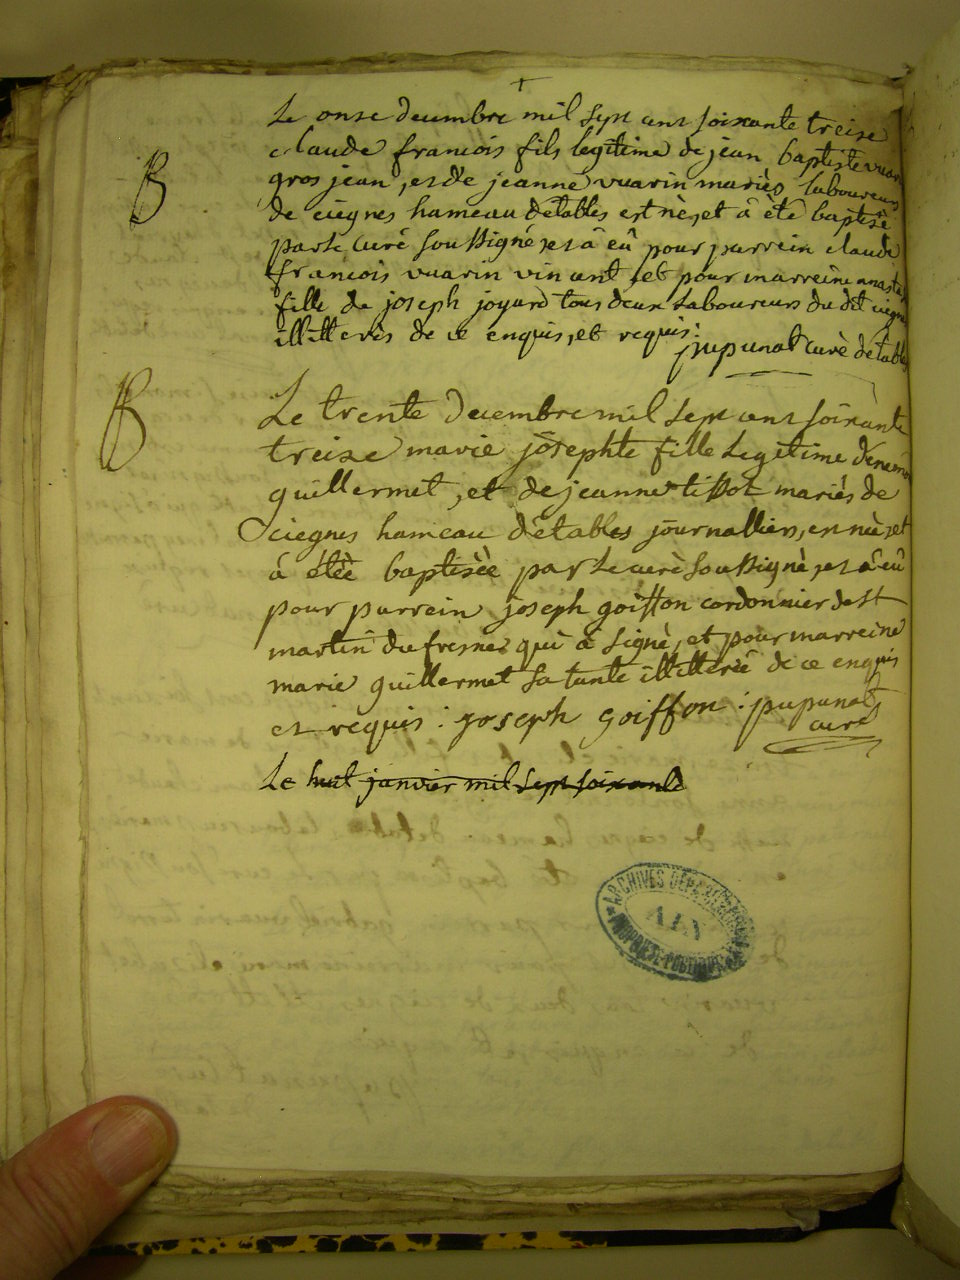 +
Le onse decembre mil sept cens soixante treise
B
claude francois fils legitime de jean baptiste vuarin
gros jean, et de jeanne vuarin mariés laboureurs
de ciegnes hameau détables est né, et â êtê baptisé
par le curé soussigné, et â eû pour parrein claude
francois vuarin vincent, et pour marreine anasta
fille de joseph joyard tous deux laboureurs du dit ciegne
illitterés de ce enquis, et requis:
pupunat curé détables
B
Le trente decembre mil sept cens soixante
treize marie josephte fille legitime de
guillermet, et de jeanne tissot mariés de
ciegnes hameau d'étables journalliers, en née, et
â étée baptisée par le curé soussigné, et â eû
pour parrein joseph goiffon cordonnier de st
martin du fresnes qui â signé, et pour marreine
marie guillermet sa tante illitterée de ce enquis
et requis: joseph goiffon: pupunat
curé
Le huit janvier mil sept soixante
ARCHIVES DÉP
AIN
PROPRIÉTÉ PUBLIQUE